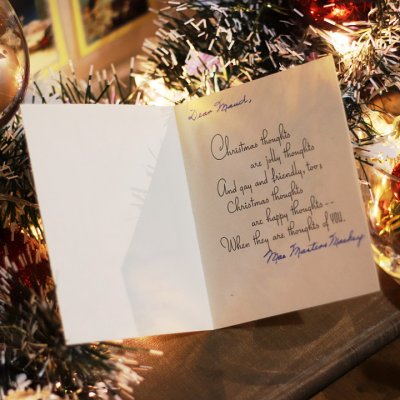 Dear Maud,
Christmas thoughts
are jolly thoughts
And gay and friendly, too;
Christmas thoughts
are happy thoughts--
When they are thoughts of YOU.